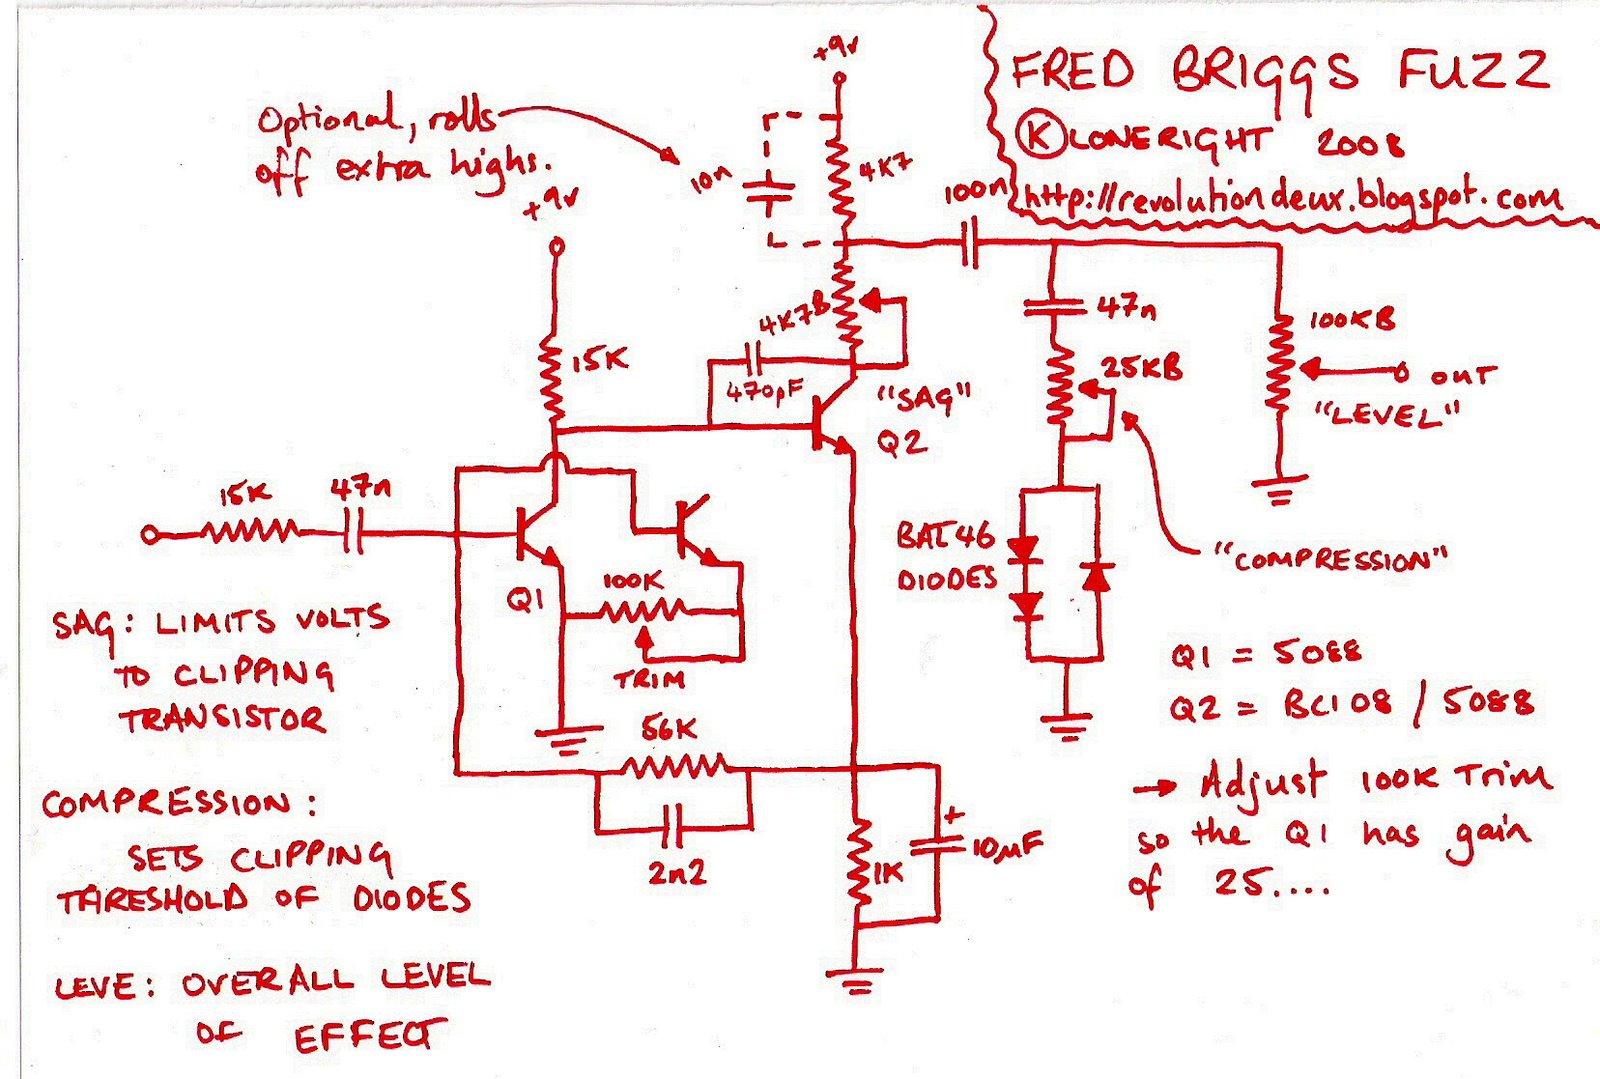 FRED BRIGGS FUZZ
Ⓚ LONERIGHT 2008
http://revolutiondeux.blogspot.com
Optional, rolls
off extra highs.
+9v
+9v
10n
4K7
100n
4K7B
470pF
"SAG"
Q2
15K
47n
25KB
100KB
OUT
"LEVEL"
15K
47n
Q1
100K
TRIM
BAT46
DIODES
"COMPRESSION"
56K
2n2
1K
+
10µF
SAG: LIMITS VOLTS
TO CLIPPING
TRANSISTOR
COMPRESSION:
SETS CLIPPING
THRESHOLD OF DIODES
LEVE: OVERALL LEVEL
OF EFFECT
Q1 = 5088
Q2 = BC108 / 5088
→ Adjust 100K Trim
so the Q1 has gain
of 25....